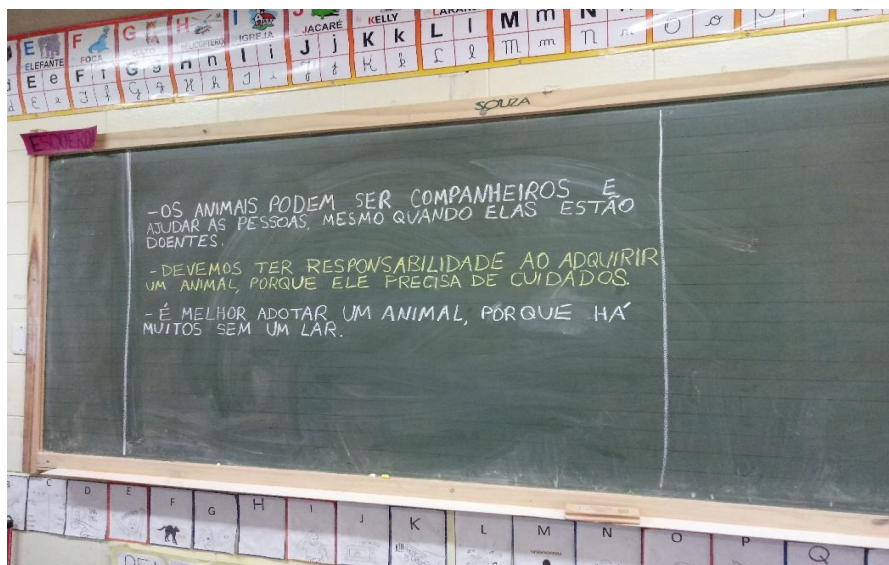 E F G H I J K k L l M m N
ELEFANTE FOCA IGREJA JACARÉ KELLY
E e F f G g H h I i J j
SOUZA
ESQUERD
-OS ANIMAIS PODEM SER COMPANHEIROS E
AJUDAR AS PESSOAS, MESMO QUANDO ELAS ESTÃO
DOENTES.
-DEVEMOS TER RESPONSABILIDADE AO ADQUIRIR
UM ANIMAL, PORQUE ELE PRECISA DE CUIDADOS.
- É MELHOR ADOTAR UM ANIMAL, PORQUE HÁ
MUITOS SEM UM LAR.
C D E F G H I J K L M N O P Q